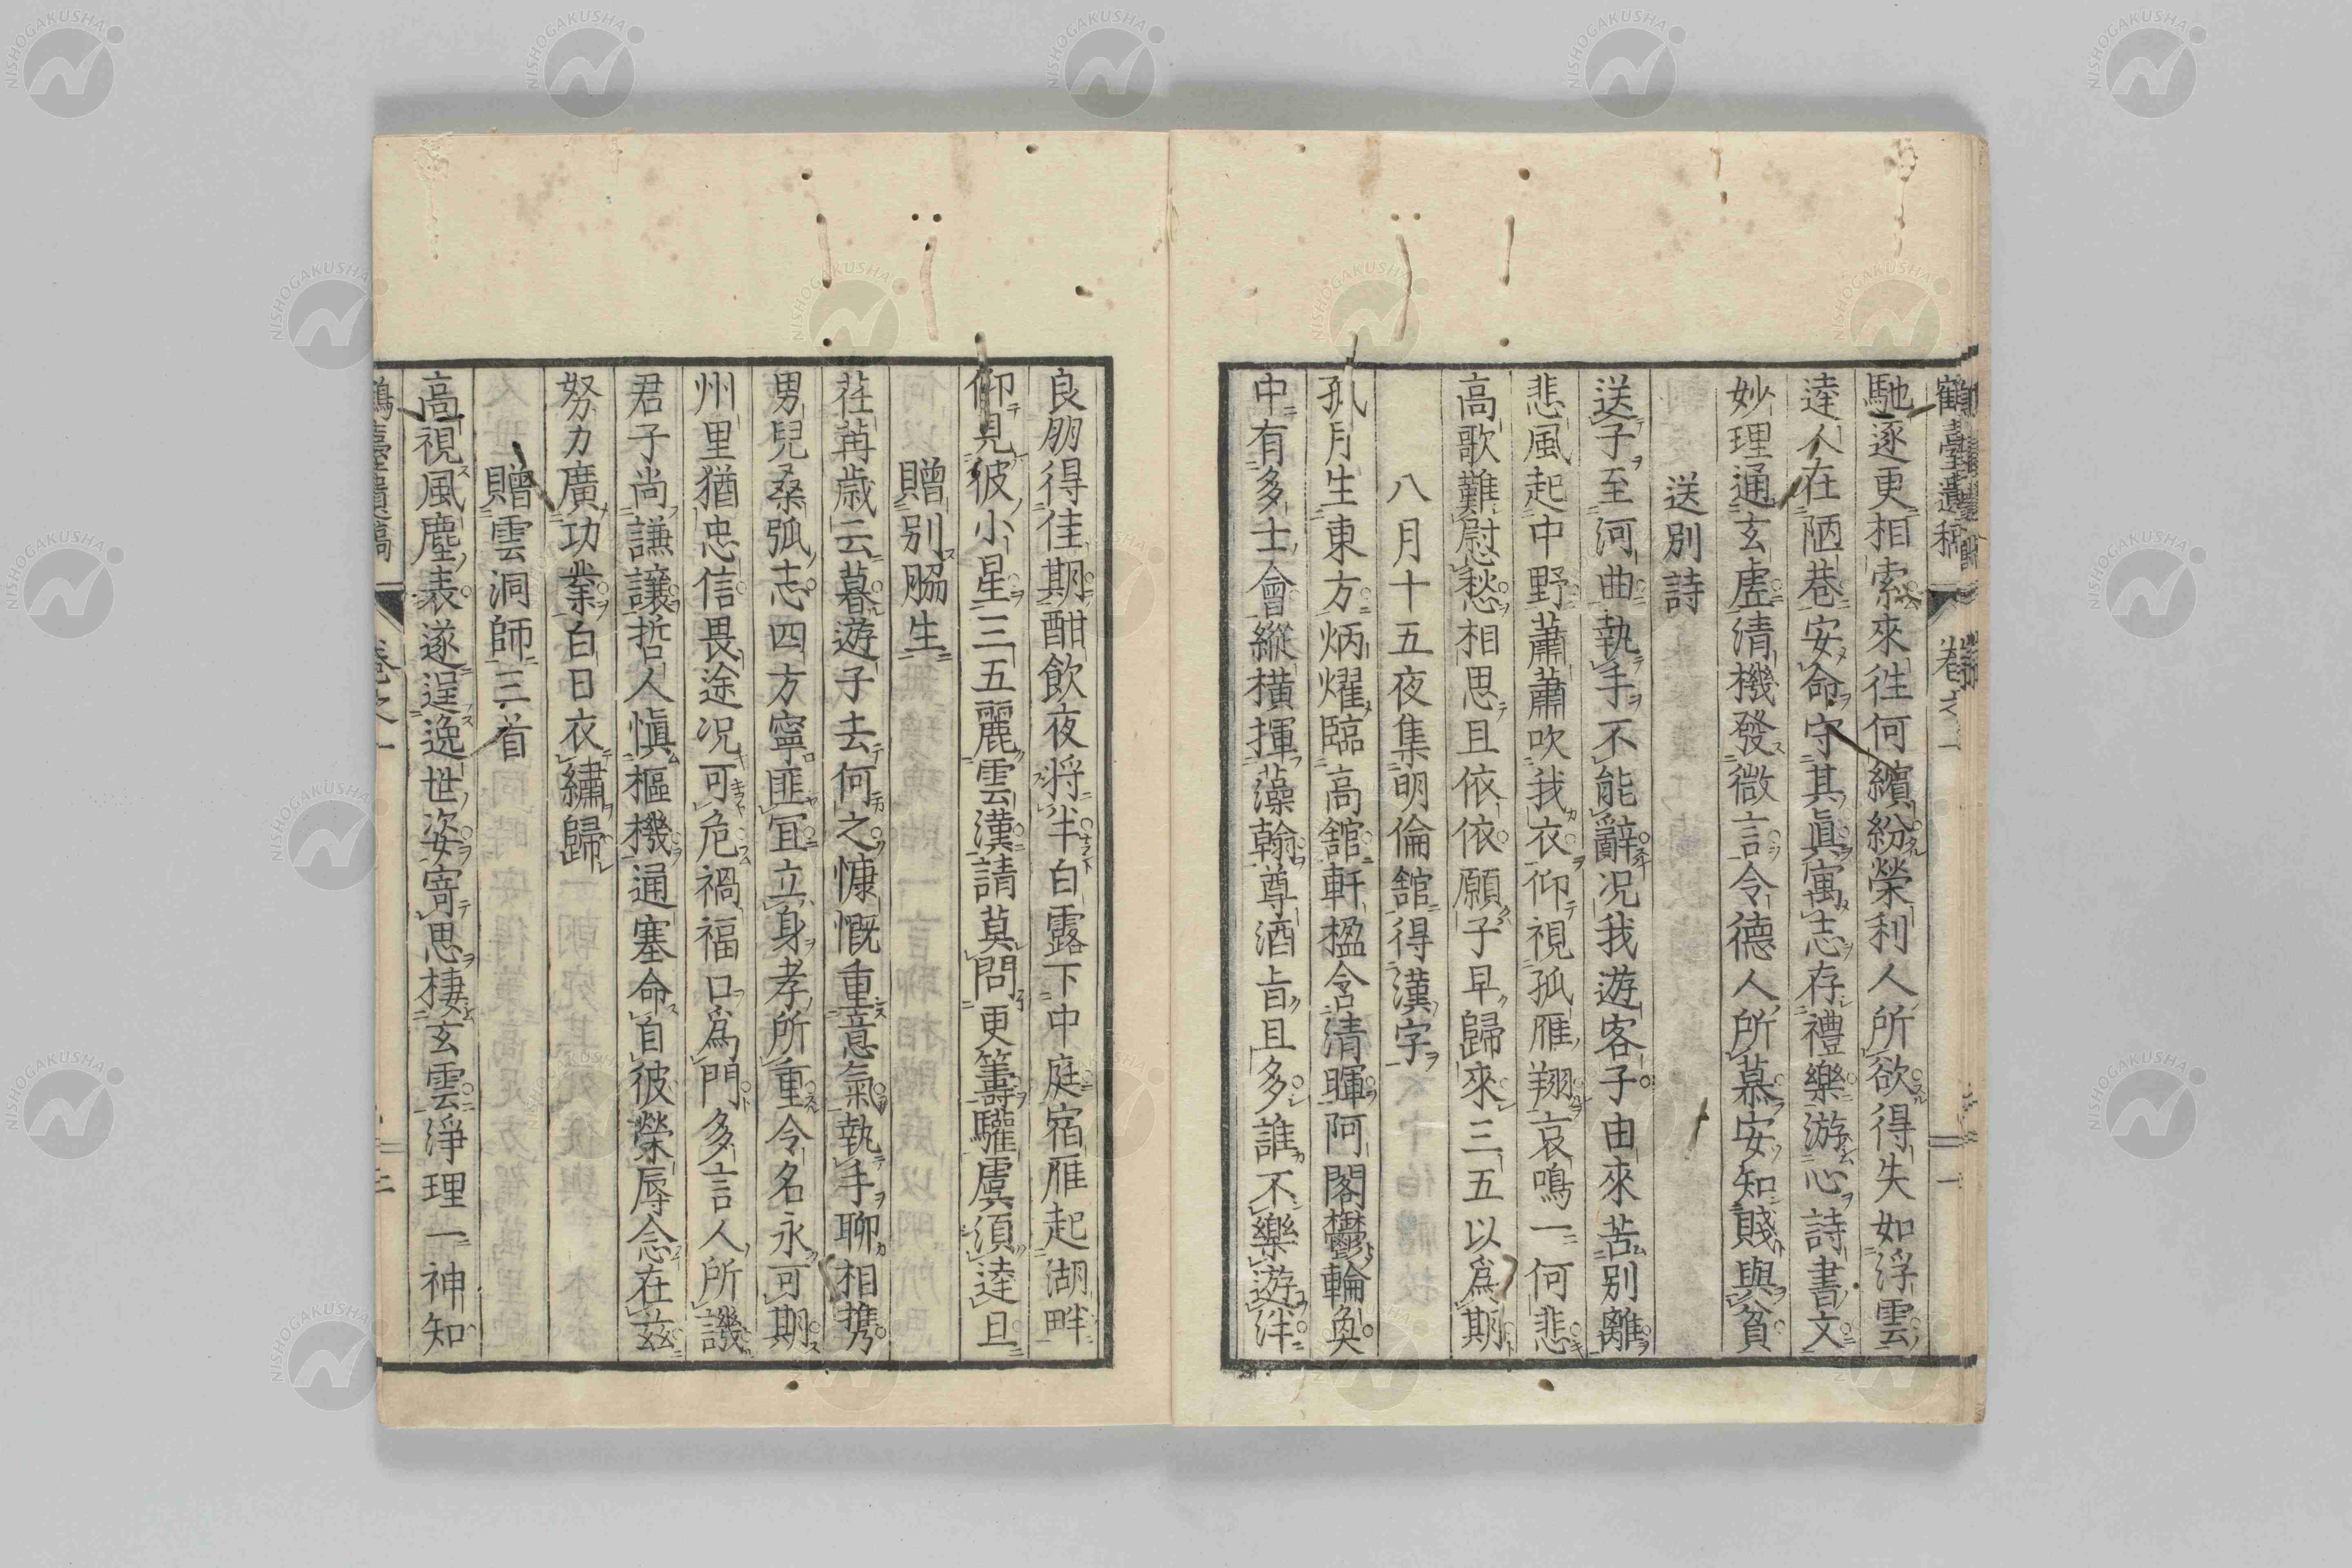 鶴臺遺稿 卷之一 一
馳逐更相索來徃何繽紛榮利人所欲得失如浮雲
達人在陋巷安命守其眞寓志存禮樂游心詩書文
妙理通玄虛清機發微言令德人所慕安知賤與貧
送別詩
送子至河曲執手不能辭况我遊客子由來苦別離
悲風起中野蕭蕭吹我衣仰視孤雁翔哀鳴一何悲
高歌難慰愁相思且依依願子早歸來三五以爲期
八月十五夜集明倫舘得漢字
孤月生東方炳燿臨高舘軒楹含清暉阿閣鬱輪奐
中有多士會縱橫揮藻翰尊酒旨且多誰不樂遊泮
良朋得佳期酣飲夜将半白露下中庭宿雁起湖畔
仰見彼小星三五麗雲漢請莫問更籌驩虞須達旦
贈別脇生
荏苒歳云暮遊子去何之慷慨重意氣執手聊相携
男兒桑弧志四方寧匪冝立身孝所重令名永可期
州里猶忠信畏途况可危禍福口爲門多言人所譏
君子尚謙讓哲人愼樞機通塞命自彼榮辱念在茲
努力廣功業白日衣繡歸
贈雲洞師三首
高視風塵表遂逞逸世姿寄思棲玄雲淨理一神知
鶴臺遺稿 卷之一 二
NISHOGAKUSHA